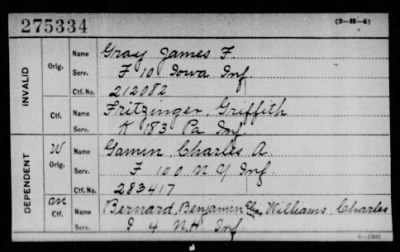 275334 (3-H-4)
INVALID
Orig. Name Gray James F.
Serv. F 10 Iowa Inf.
Ctf. No. 212082
Ctf. Name Fritzinger, Griffith
Serv. K 183 Pa Inf.
DEPENDENT
W Orig. Name Gamm Charles A.
Serv. F 100 N Y Inf.
Ctf. No. 283417
Ctf. Name Bernard, Benjamin Williams, Charles
Serv. I 4 N H Inf